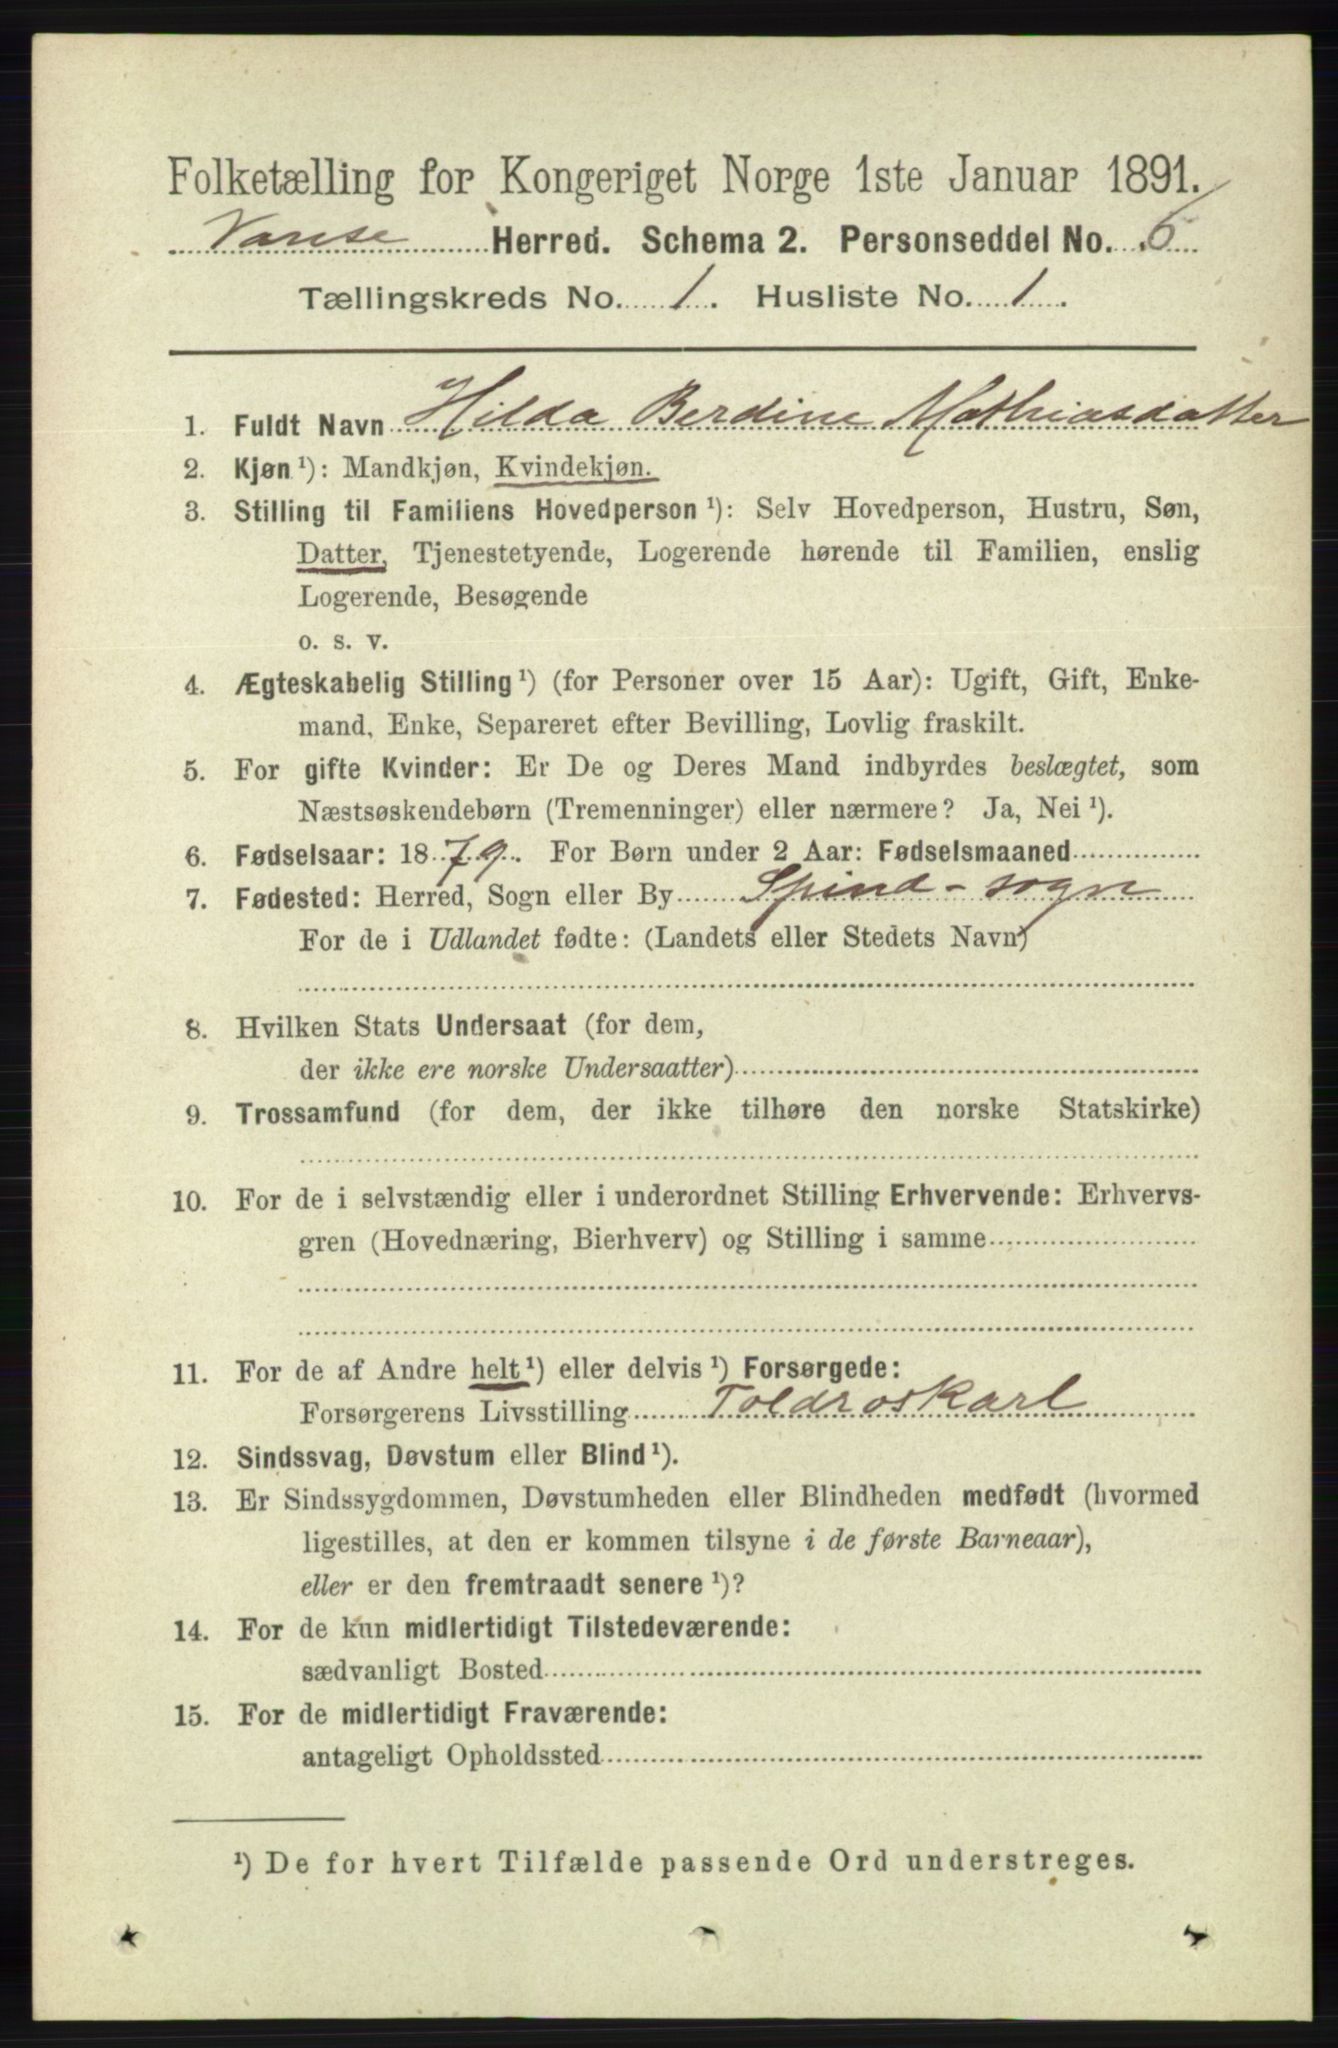 Folketælling for Kongeriget Norge 1ste Januar 1891.
Vanse Herred. Schema 2. Personseddel No. 6
Tællingskreds No. 1. Husliste No. 1.
1. Fuldt Navn Hilda Berdine Mathiasdatter
2. Kjøn ¹): Mandkjøn, Kvindekjøn.
3. Stilling til Familiens Hovedperson ¹): Selv Hovedperson, Hustru, Søn,
Datter, Tjenestetyende, Logerende hørende til Familien, enslig
Logerende, Besøgende
o. s. v.
4. Ægteskabelig Stilling ¹) (for Personer over 15 Aar): Ugift, Gift, Enke-
mand, Enke, Separeret efter Bevilling, Lovlig fraskilt.
5. For gifte Kvinder: Er De og Deres Mand indbyrdes beslægtet, som
Næstsøskendebørn (Tremenninger) eller nærmere? Ja, Nei ¹).
6. Fødselsaar: 1879. For Børn under 2 Aar: Fødselsmaaned
7. Fødested: Herred, Sogn eller By Spind-sogn
For de i Udlandet fødte: (Landets eller Stedets Navn)
8. Hvilken Stats Undersaat (for dem,
der ikke ere norske Undersaatter)
9. Trossamfund (for dem, der ikke tilhøre den norske Statskirke)
10. For de i selvstændig eller i underordnet Stilling Erhvervende: Erhvervs-
gren (Hovednæring, Bierhverv) og Stilling i samme
11. For de af Andre helt ¹) eller delvis ¹) Forsørgede:
Forsørgerens Livsstilling Toldroskarl
12. Sindssvag, Døvstum eller Blind ¹).
13. Er Sindssygdommen, Døvstumheden eller Blindheden medfødt (hvormed
ligestilles, at den er kommen tilsyne i de første Barneaar),
eller er den fremtraadt senere ¹)?
14. For de kun midlertidigt Tilstedeværende:
sædvanligt Bosted
15. For de midlertidigt Fraværende:
antageligt Opholdssted
¹) De for hvert Tilfælde passende Ord understreges.